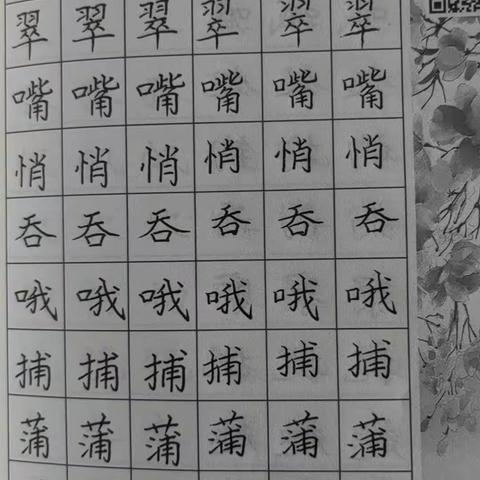 翠翠翠翠翠翠
嘴嘴嘴嘴嘴嘴
悄悄悄悄悄悄
吞吞吞吞吞吞
哦哦哦哦哦哦
捕捕捕捕捕捕
蒲蒲蒲蒲蒲蒲